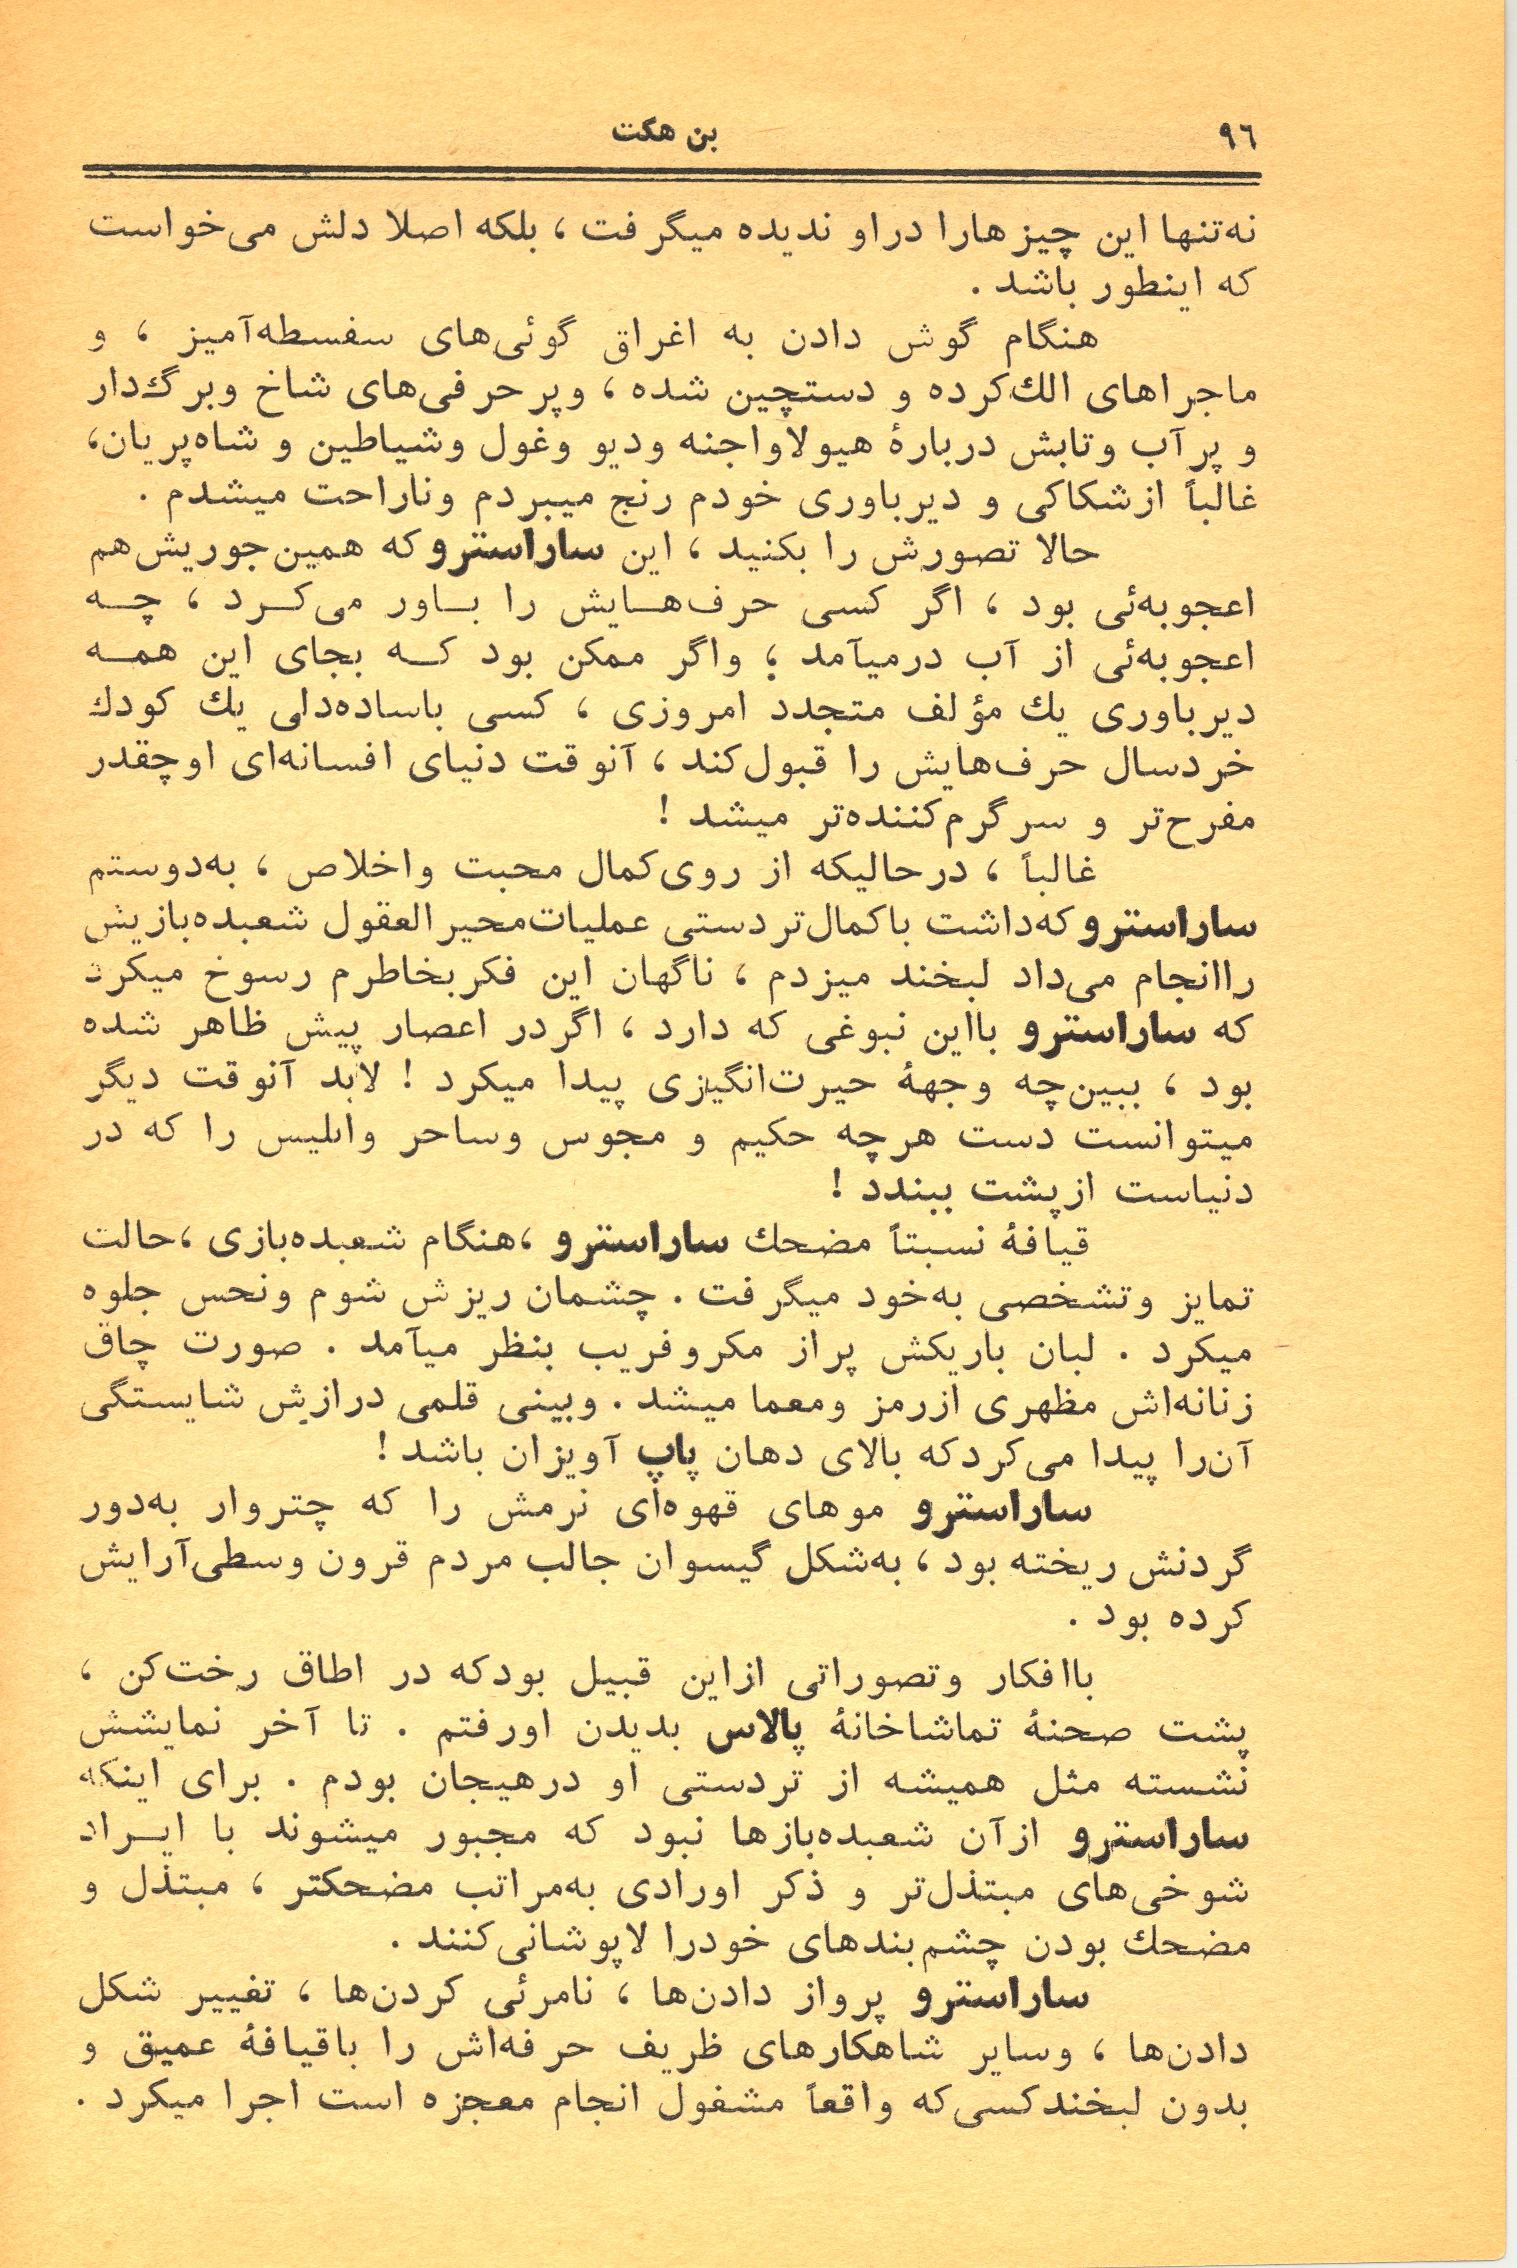 ۹٦
بن هکت
نه‌تنها این چیزهارا دراو ندیده میگرفت ، بلکه اصلا دلش می‌خواست
که اینطور باشد .
هنگام گوش دادن به اغراق گوئی‌های سفسطه‌آمیز ، و
ماجراهای الك‌کرده و دستچین شده ، وپرحرفی‌های شاخ وبرگ‌دار
و پرآب وتابش دربارهٔ هیولاواجنه ودیو وغول وشیاطین و شاه‌پریان،
غالباً ازشکاکی و دیرباوری خودم رنج میبردم وناراحت میشدم .
حالا تصورش را بکنید ، این ساراسترو که همین‌جوریش‌هم
اعجوبه‌ئی بود ، اگر کسی حرف‌هـایش را بـاور می‌کـرد ، چـه
اعجوبه‌ئی از آب درمیآمد ؛ واگر ممکن بود کـه بجای این همـه
دیرباوری یك مؤلف متجدد امروزی ، کسی باساده‌دلی یك کودك
خردسال حرف‌هایش را قبول‌کند ، آنوقت دنیای افسانه‌ای اوچقدر
مفرح‌تر و سرگرم‌کننده‌تر میشد !
غالباً ، درحالیکه از روی‌کمال محبت واخلاص ، به‌دوستم
ساراسترو که‌داشت باکمال‌تردستی عملیات‌محیرالعقول شعبده‌بازیش
راانجام می‌داد لبخند میزدم ، ناگهان این فکربخاطرم رسوخ میکرد
که ساراسترو بااین نبوغی که دارد ، اگردر اعصار پیش ظاهر شده
بود ، ببین‌چه وجههٔ حیرت‌انگیزی پیدا میکرد ! لابد آنوقت دیگر
میتوانست دست هرچه حکیم و مجوس وساحر وابلیس را که در
دنیاست ازپشت ببندد !
قیافهٔ نسبتاً مضحك ساراسترو ،هنگام شعبده‌بازی ،حالت
تمایز وتشخصی به‌خود میگرفت . چشمان ریزش شوم ونحس جلوه
میکرد . لبان باریکش پراز مکروفریب بنظر میآمد . صورت چاق
زنانه‌اش مظهری ازرمز ومعما میشد . وبینی قلمی درازش شایستگی
آن‌را پیدا می‌کردکه بالای دهان پاپ آویزان باشد !
ساراسترو موهای قهوه‌ای نرمش را که چتروار به‌دور
گردنش ریخته بود ، به‌شکل گیسوان جالب مردم قرون وسطی‌آرایش
کرده بود .
باافکار وتصوراتی ازاین قبیل بودکه در اطاق رخت‌کن ،
پشت صحنهٔ تماشاخانهٔ پالاس بدیدن اورفتم . تا آخر نمایشش
نشسته مثل همیشه از تردستی او درهیجان بودم . برای اینکه
ساراسترو ازآن شعبده‌بازها نبود که مجبور میشوند با ایـراد
شوخی‌های مبتذل‌تر و ذکر اورادی به‌مراتب مضحکتر ، مبتذل و
مضحك بودن چشم‌بندهای خودرا لاپوشانی‌کنند .
ساراسترو پرواز دادن‌ها ، نامرئی کردن‌ها ، تغییر شکل
دادن‌ها ، وسایر شاهکارهای ظریف حرفه‌اش را باقیافهٔ عمیق و
بدون لبخندکسی‌که واقعاً مشغول انجام معجزه است اجرا میکرد .